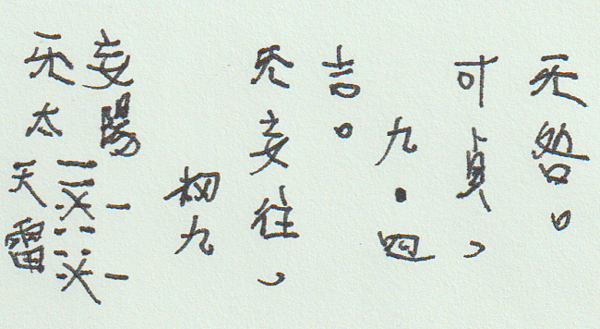 无妄
太陽
天雷
初九
无妄往，
吉。
九·四
可貞，
无咎。